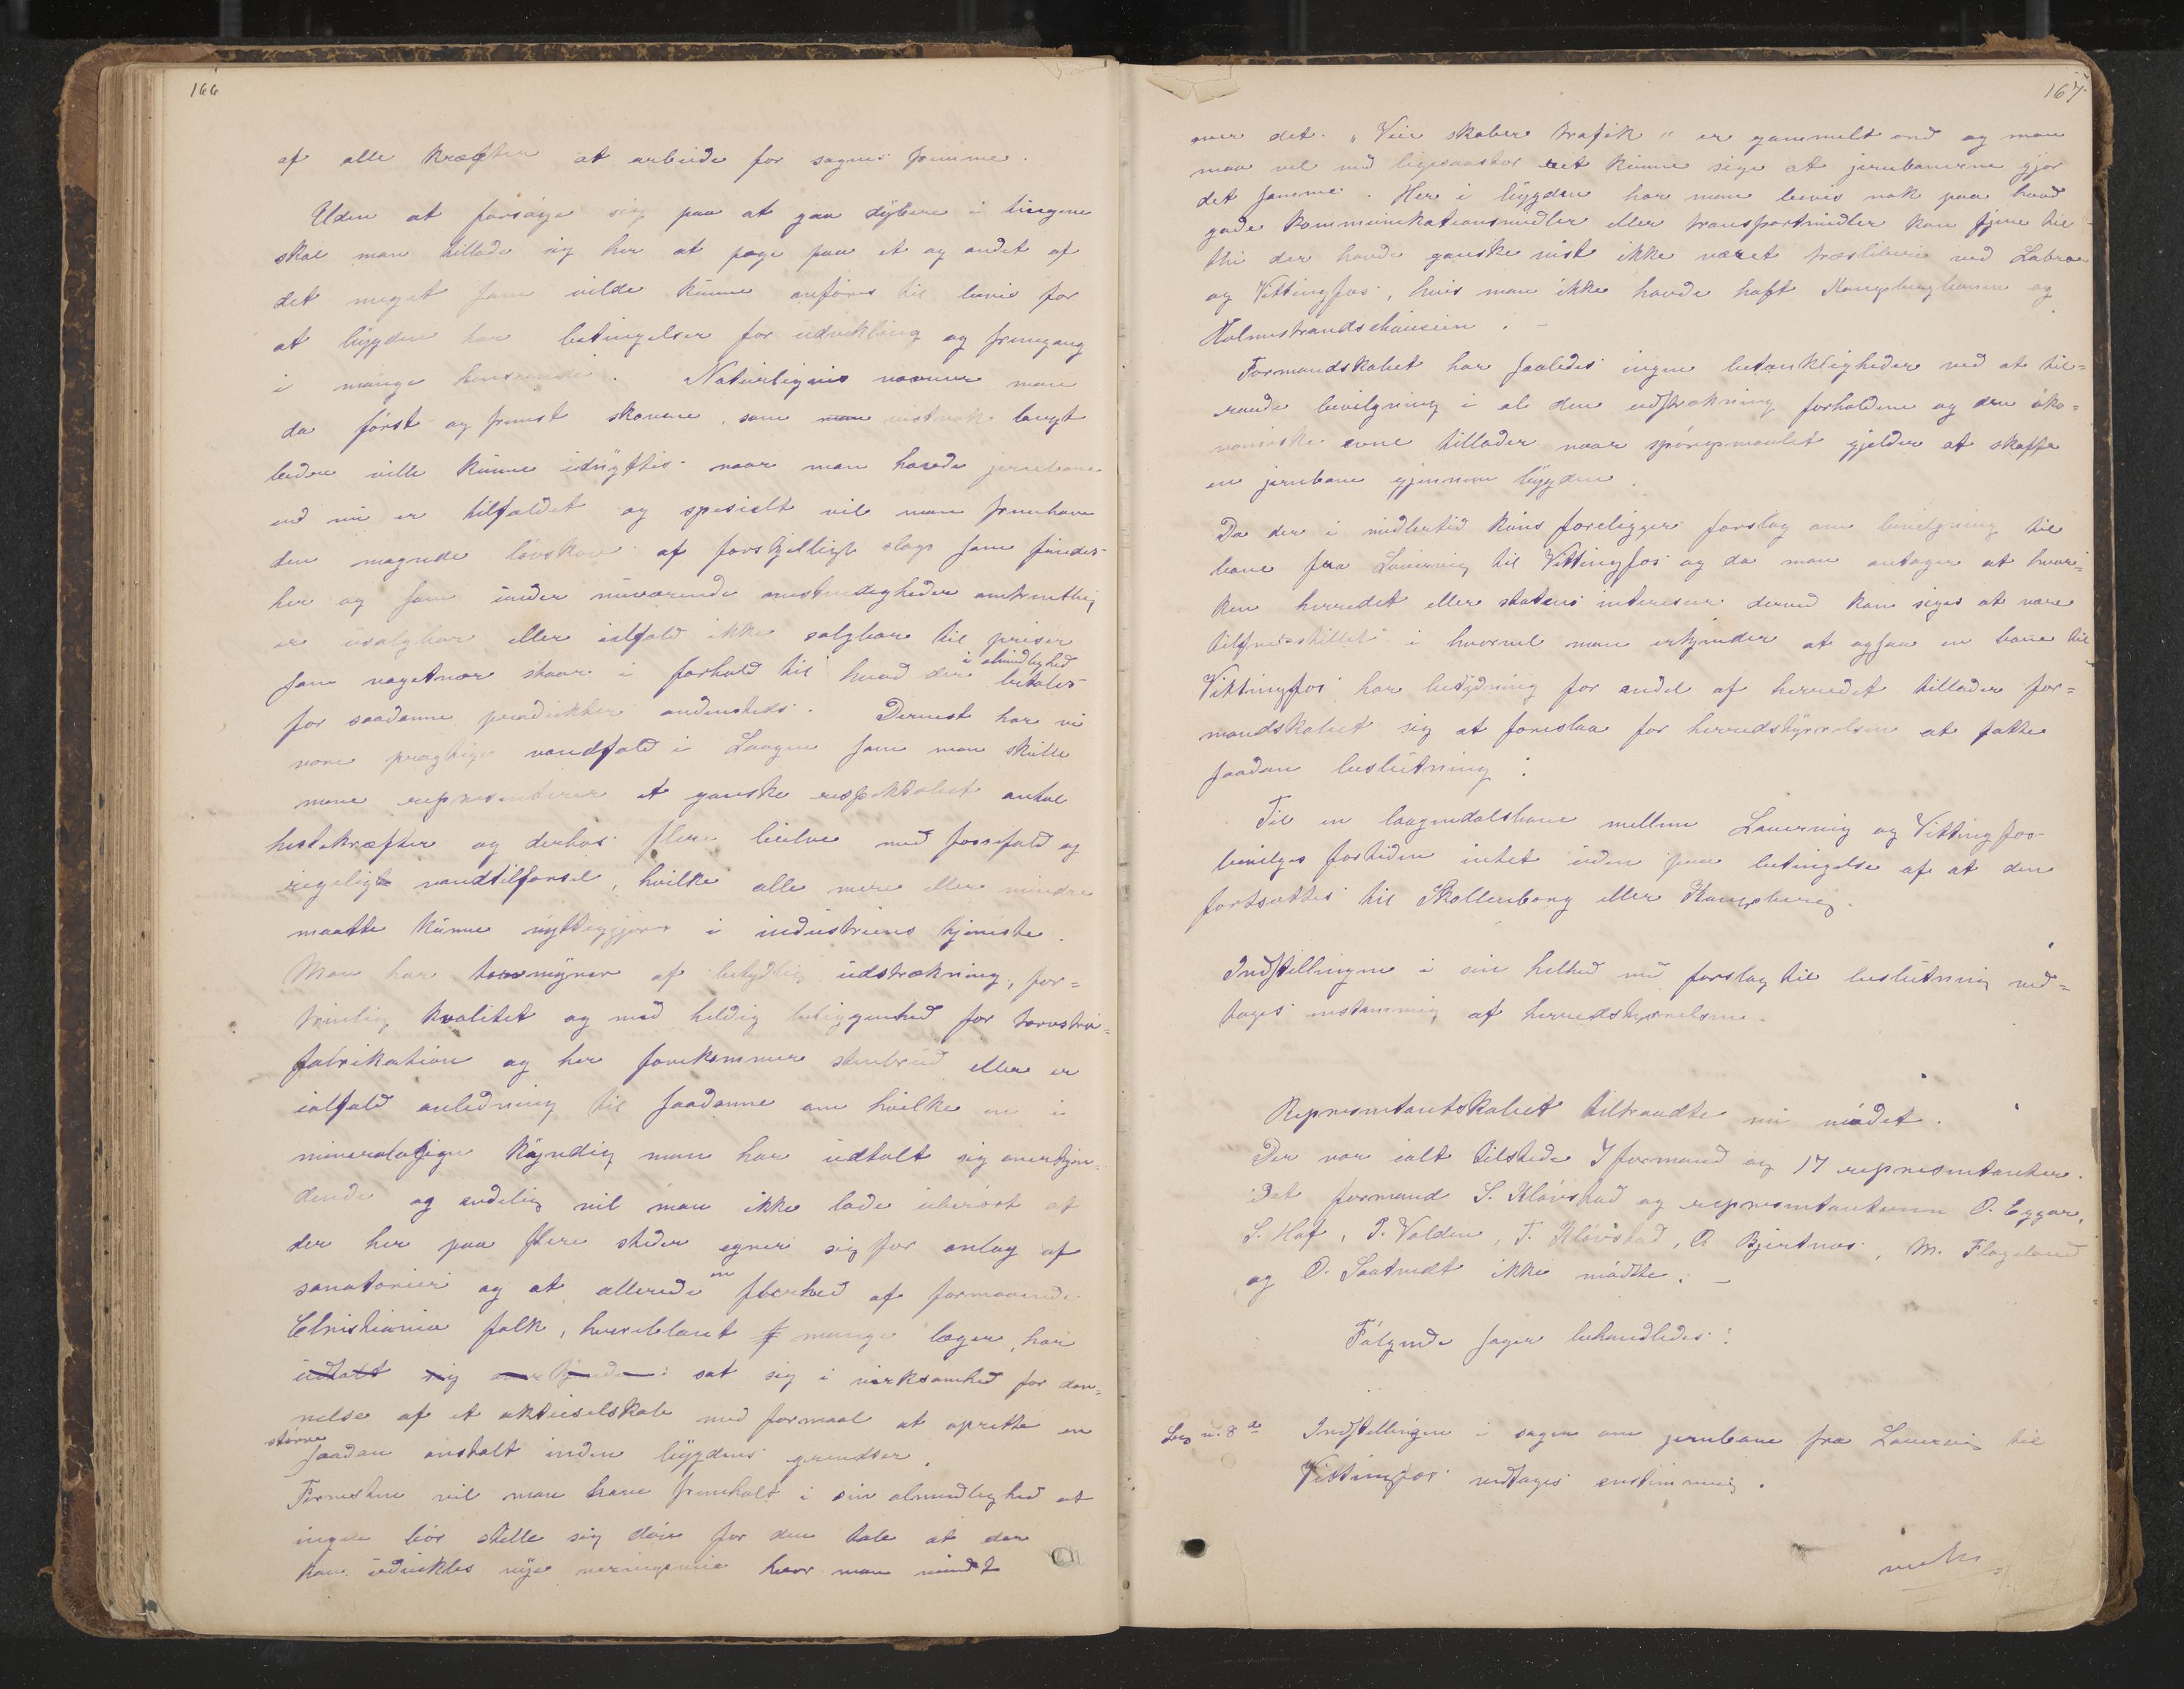 166
af alle kræfter at arbeide for sagens fremme.
Uden at forsøge sig paa at gaa dybere i tingene
skal man tillade sig her at pege paa et og andet af
det meget som vilde kunne anføres til bevis for
at bygden har betingelser for udvikling og fremgang
i mange henseende. Naturligvis nævner man
da først og fremst skovene, som man vistnok langt
bedre ville kunne udnyttes naar man havde jernbane
end nu er tilfældet og specielt vil man fremhæve
den megende løvskov af forskjelligt slags som findes
her og som under nuværende omstændigheder omtrentlig
er usalgbar eller ialfald ikke salgbar til priser
i almindlighed
som nogetnær staar i forhold til hvad der betales
for saadanne produkter andensteds. Dernest har vi
vore prægtige vandfald i Laagen som man skulle
mene representerer et ganske respektabelt antal
hestekræfter og derhos flere bielve med fossefald og
rigeligt vandtilførsel, hvilke alle mere eller mindre
maatte kunne nyttiggjøres i industriens tjeneste.
Man har torvmyrer af betydelig udstrækning, for=
trinlig kvalitet og med heldig beliggenhed for torvstrø=
fabrikation og her forekommer stenbrud eller er
ialfald anledning til saadanne om hvilke en i
mineralogien kyndig man har udtalt sig anerkjen=
dende og endelig vil man ikke lade uberørt at
der her paa flere steder egner sig for anlæg af
en
sanatorier og at allerede flerhed af formaaende
Christiania folk, hvoriblant mange læger, har
udtalt sig anerkjendende sat sig i virksomhed for dan=
nelse af et aktieselskab med formaal at oprette en
større
saadan anstalt inden bygdens grendser.
Forresten vil man have fremholdt i sin almindlighed at
ingen bør stille sig døve for den tale at der
kan udvikles nye næringsveie hvor man mindst
167
mer det. "Veie skaber trafik" er gammelt ord og man
maa vel med ligesaastor ret kunne sige at jernbanerne gjør
det samme. Her i bygden har man bevis nok paa hvad
gode kommunikationsmidler eller transportmidler kan tjene til
thi der havde ganske vist ikke været træsliberi ved Labro
og Vittingfos, hvis man ikke havde haft Kongsbergbanen og
Holmestrandschauseen. –
Formandskabet har saaledes ingen betænkligheder ved at til=
raade bevilgning i al den udstrækning forholdene og den øko=
nomiske evne tillader naar spørgsmaalet gjelder at skaffe
en jernbane gjennem bygden.
Da der i midlertid kuns foreligger forslag om bevilgning til
bane fra Laurvig til Vittingfos og da man antager at hver=
ken herredet eller statens interesser derved kan siges at være
tilfredsstillet i hvorvel man erkjender at ogsaa en bane til
Vittingfos har betydning for endel af herredet tillader for=
mandskabet sig at foreslaa for herredstyrrelsen at fatte
saadan beslutning:
Til en laagendalsbane mellem Laurvig og Vittingfos
bevilges fortiden intet uden paa betingelse af at den
fortsættes til Skollenborg eller Kongsberg.
Indstillingen i sin helhed med forslag til beslutning ved=
toges enstemmig af herredstyrrelsen.
Representantskabet tiltraadte nu mødet.
Der var ialt tilstede 7 formænd og 17 representanter.
idet formand S. Kløvstad og representanterne O. Eggar,
S. Hof, P. Volden, T. Kløvstad, O Bjertnæs, M. Flageland
og O. Saatvedt ikke mødte. –
Følgende sager behandledes:
Indstillingen i sagen om jernbane fra Laurvig til
Vittingfos vedtages enstemmig.